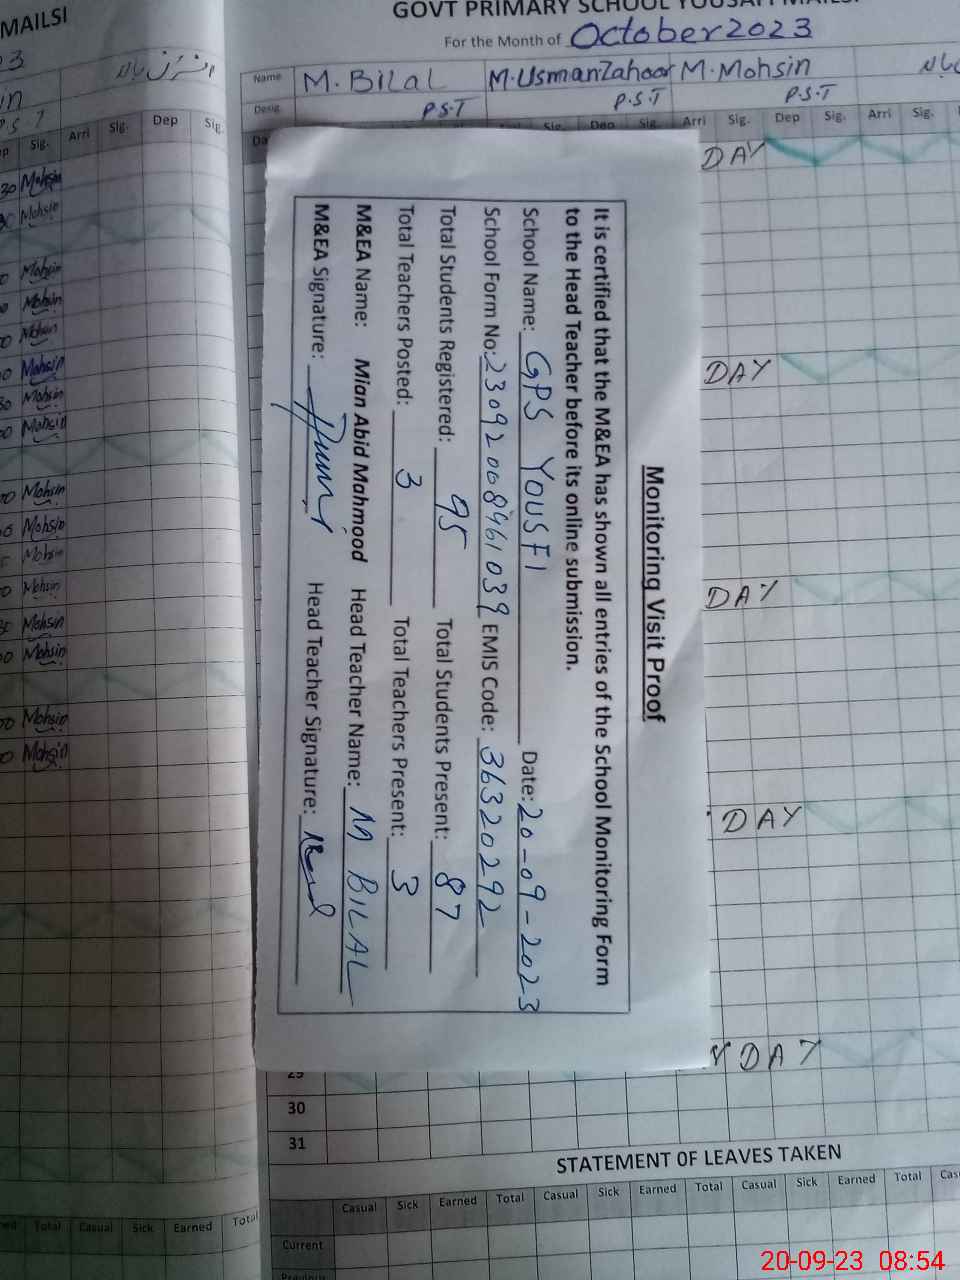 MAILSI
GOVT PRIMARY SCHOOL YOUSAFI MAILSI
For the Month of October 2023
Name M. Bilal M. Usman Zahoor M. Mohsin
Desig. P.S.T P.S.T P.S.T
Arri Sig. Dep Sig. Arri Sig.
Sig. Arri Sig. Dep Sig.
DAY
DAY
DAY
DAY
DAY
Mohsin
Mohsin
Mohsin
Mohsin
Mohsin
Mohsin
Mohsin
Mohsin
Mohsin
Mohsin
Mohsin
Mohsin
Mohsin
Mohsin
Mohsin
Mohsin
Monitoring Visit Proof
It is certified that the M&EA has shown all entries of the School Monitoring Form
to the Head Teacher before its online submission.
School Name: GPS YOUSFI Date: 20-09-2023
School Form No: 23092008961039 EMIS Code: 36320292
Total Students Registered: 95 Total Students Present: 87
Total Teachers Posted: 3 Total Teachers Present: 3
M&EA Name: Mian Abid Mahmood Head Teacher Name: M BILAL
M&EA Signature: Head Teacher Signature:
29
30
31
STATEMENT OF LEAVES TAKEN
Casual Sick Earned Total Casual Sick Earned Total Casual Sick Earned Total
Total Casual Sick Earned Total
Current
Previous
20-09-23 08:54